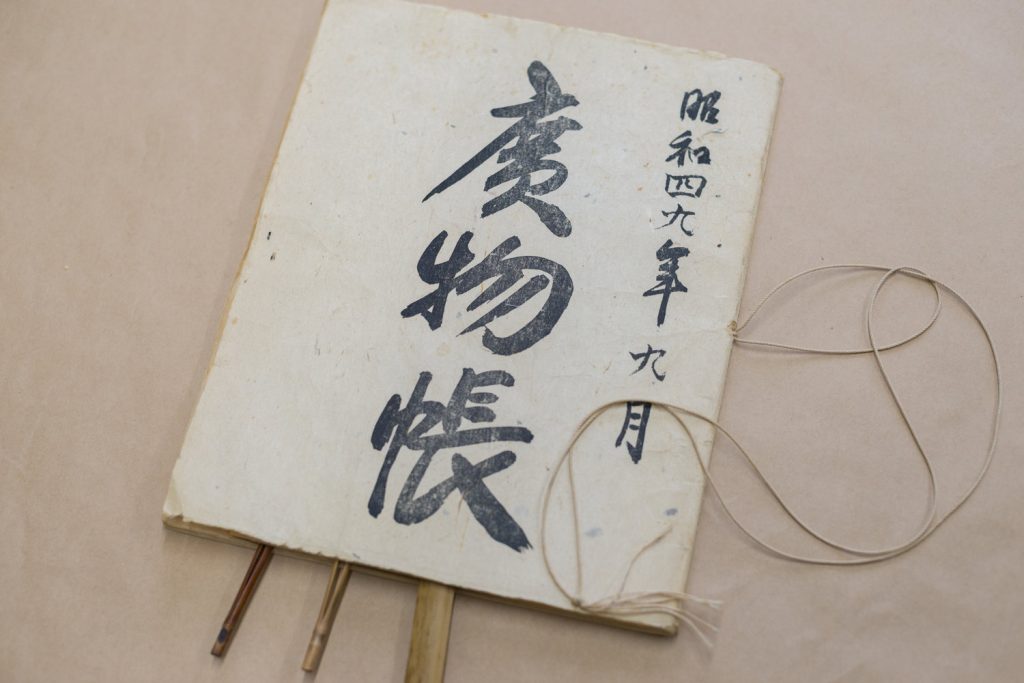 昭和四九年 九月
廣物帳